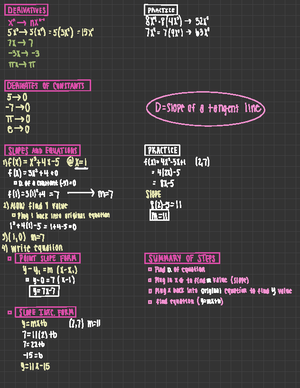 DERIVATIVES
xⁿ → nxⁿ⁻¹
5x³ → 3(5x²) = 5(3x²) = 15x²
7x → 7
-3x → -3
πx → π
PRACTICE
8x⁴ = 8(4x³) → 32x³
7x⁹ = 7(9x⁸) → 63x⁸
DERIVATES OF CONSTANTS
5 → 0
-7 → 0
π → 0
e → 0
D = Slope of a tangent line
SLOPES AND EQUATIONS
1) f(x) = x³+4x-5 @ x=1
f'(x) = 3x²+4+0
D. of a constant (-5)=0
f'(1) = 3(1)²+4 = 7 → m=7
2) NOW find Y value
Plug 1 back into original equation
1³+4(1)-5 = 1+4-5=0
3) (1,0) m=7
4) Write equation
POINT SLOPE FORM
y-y₁ = m (x-x₁)
y-0 = 7 (x-1)
y = 7x-7
SLOPE INTC. FORM
y=mx+b (2,7) m=11
7=11(2)+b
7=22+b
-15=b
y=11x-15
PRACTICE
f(x)=4x²-5x+1 (2,7)
=4(2x)-5
=8x-5
SLOPE
8(2)-5=11
m=11
SUMMARY OF STEPS
Find D. of equation
Plug in x to find m value (slope)
Plug x back into original equation to find y value
find equation (y=mx+b)